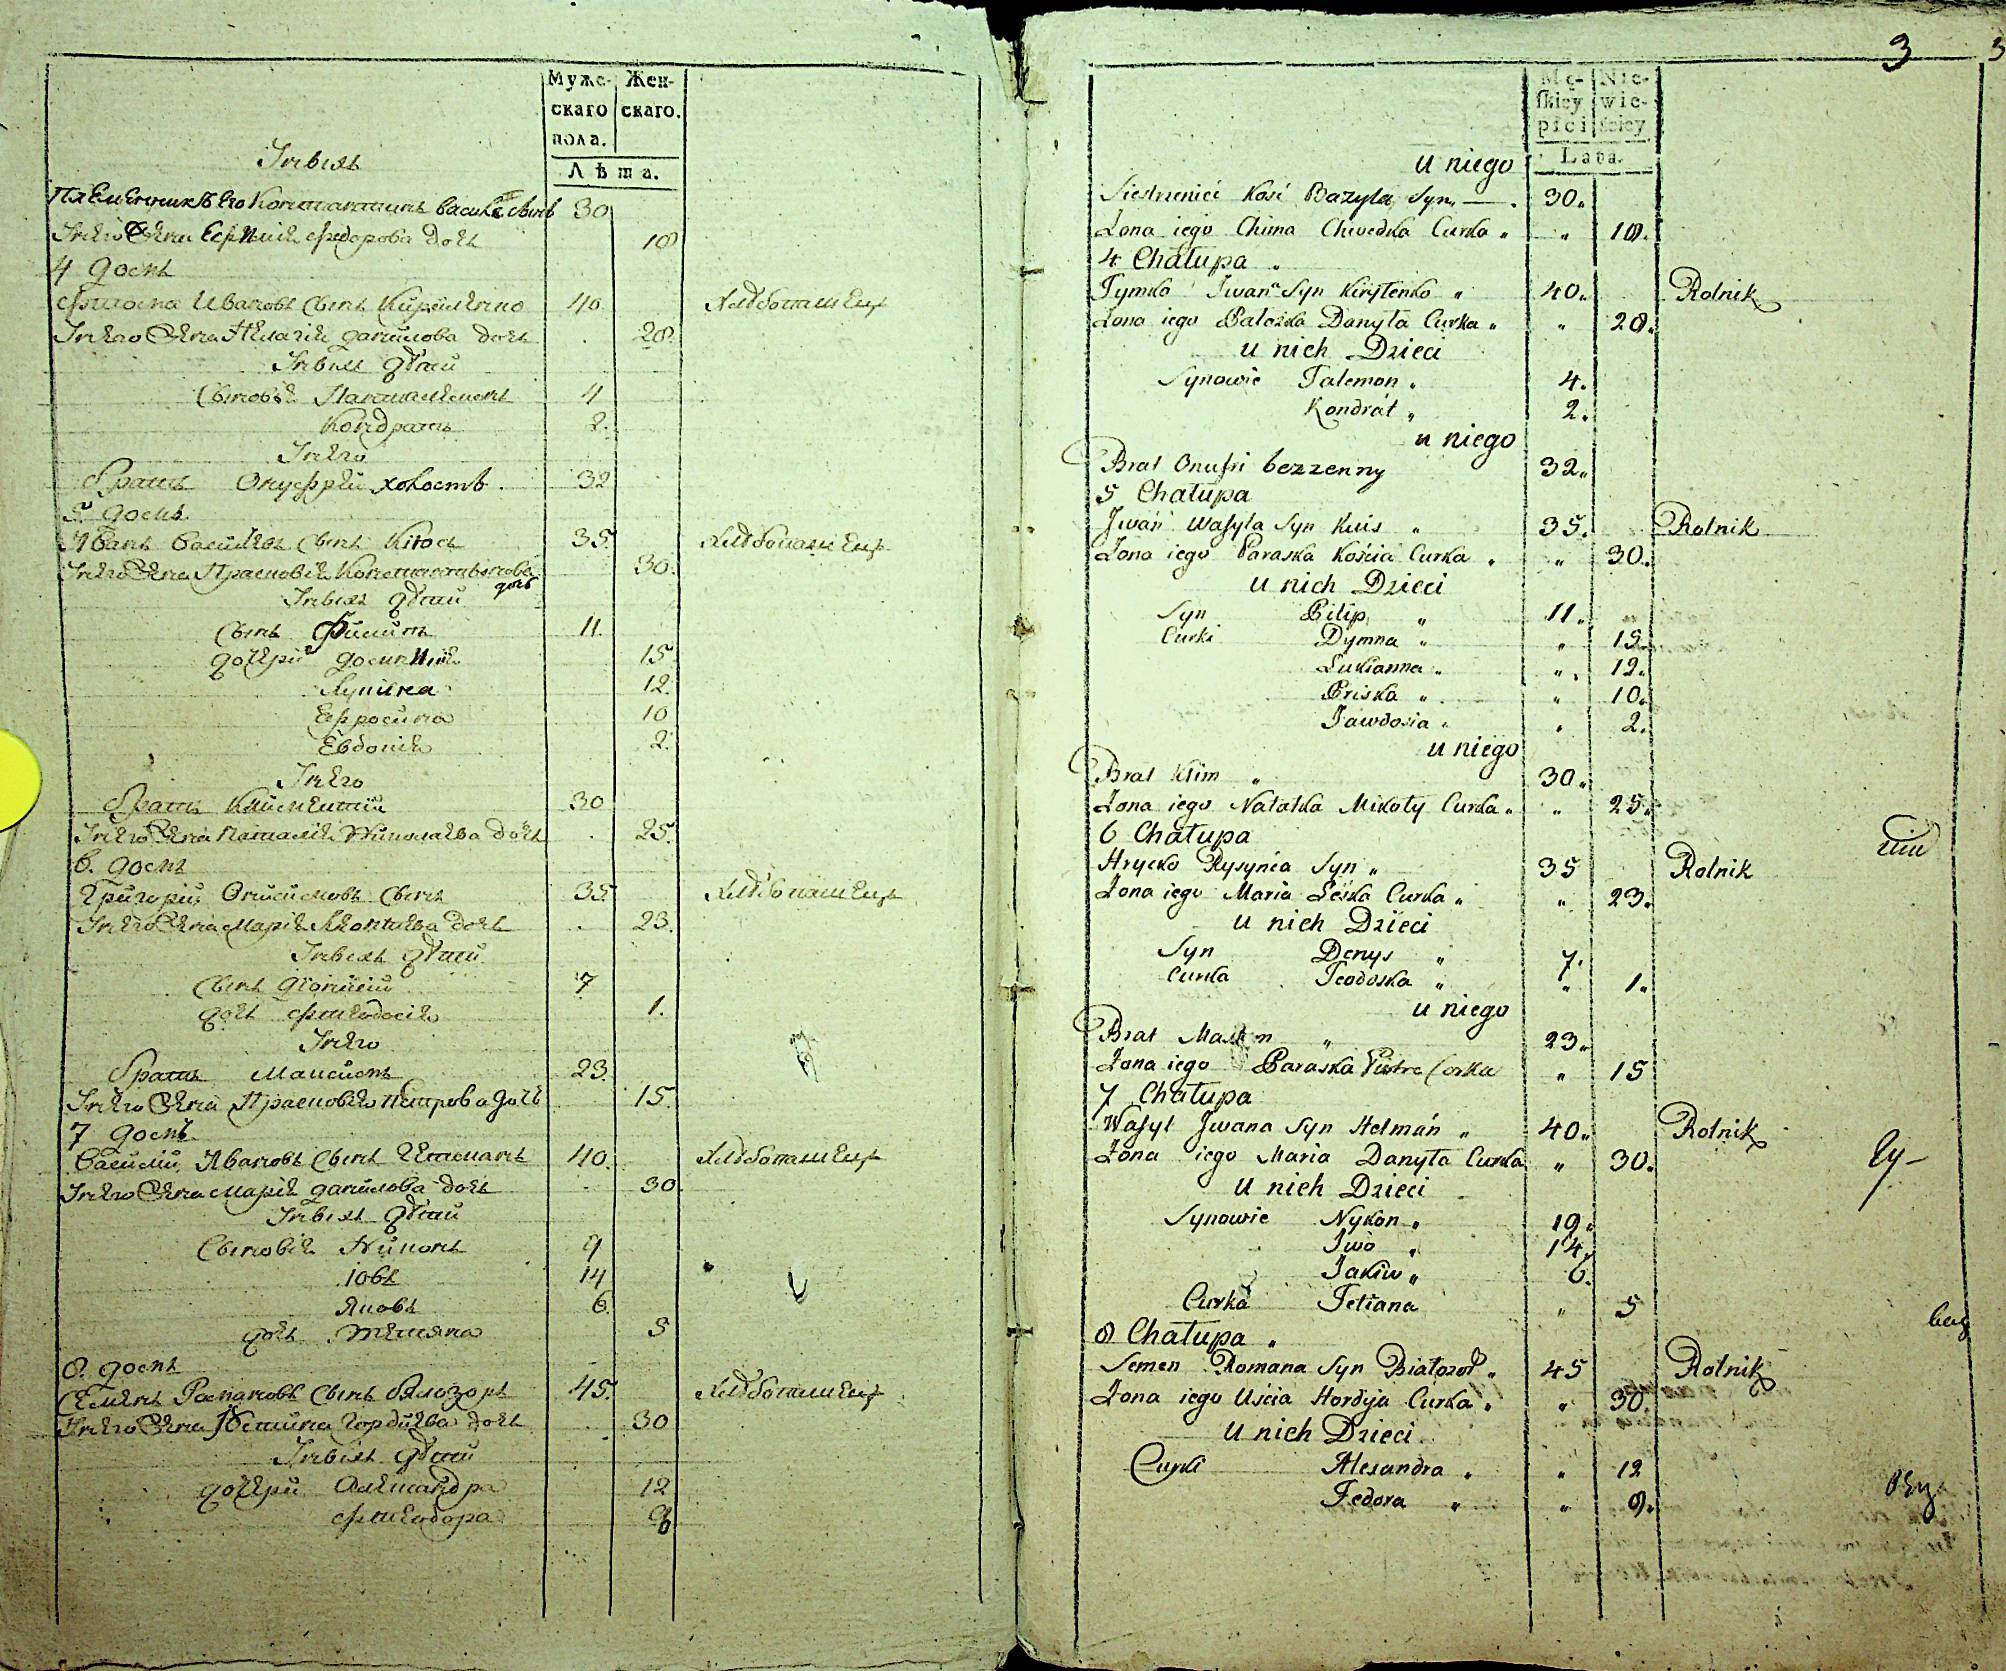 Муже-
скаго
пола.
Жен-
скаго.
Лѣта.
Унихъ
Племенникъ его Константинъ Васильевъ сынъ 30
У него жена Евфимія Федорова дочь 18
4 домъ
Иванов сынъ Кириленко 40 Хлѣбопашецъ
У него жена Пелагія Данилова дочь 28
Унихъ дѣти
Сыновья Пантелемонъ 4
Кондратъ 2.
У него
Братъ Онуфрій холостъ 32
5. домъ
Иванъ Васильевъ сынъ 35. Хлѣбопашецъ
У него жена Прасковія Константинова 30.
дочь
Унихъ дѣти
Сынъ Филипъ 11.
Дочери 15
12.
Ефросина 10
Евдокія 2.
У него
Братъ Климентій 30
У него жена Наталія Николаева дочь 25.
6. домъ
Григорій Онисимовъ сынъ 35. Хлѣбопашецъ
У него жена Марія Леонтіева дочь 23.
Унихъ дѣти
Сынъ Діонисій 7
дочь Феодосія 1.
У него
Братъ Максимъ 23.
У него жена Прасковія Петрова дочь 15.
7 домъ
Василій Ивановъ сынъ Гетманъ 40. Хлѣбопашецъ
У него жена Марія Данилова дочь 30.
Унихъ дѣти
Сыновья Никонъ 9
Іовъ 14
Яковъ 6.
дочь Тетяна 5
8. домъ
Семенъ Романовъ сынъ Бялозоръ 45. Хлѣбопашецъ
У него жена Іустина Гордіева дочь 30
Унихъ дѣти
дочери Александра 12
Феодора 8
3
Mę-
skiey
płci
Nie-
wie-
ściey
Lata.
u niego
Siestrzenicć Kość Bazyla Syn 30.
Żona iego Chima Chwedka Curka " " 18.
4 Chałupa "
Tymko Jwana Syn Kiryłenko " 40. Rolnik
Żona iego Palażka Danyła Curka " " 28.
u nich Dzieci
Synowie Talemon " 4.
Kondrát " 2.
u niego
Brat Onufri bezzenny 32.
5 Chałupa
Jwan Wasyla Syn Kuis " 35. Rolnik
Żona iego Paraska Kościa Curka " " 30.
u nich Dzieci
Syn Pilip " 11.
Curki Dymna " " 15.
Lukianna " " 12.
Priska " " 10.
Jawdosia " " 2.
u niego
Brat Klim " 30.
Żona iego Natalka Mikoły Curka " " 25.
6 Chałupa
Hrycko Rysynia Syn " 35 Rolnik
Żona iego Maria Leska Curka " " 23.
u nich Dzieci
Syn Denys " 7.
Curka Teodoska " " 1.
u niego
Brat " 23.
Żona iego Paraska Piotra Corka " 15
7 Chałupa
Wasyl Jwana Syn Hetmán " 40. Rolnik
Żona iego Maria Danyła Curka " 30.
u nich Dzieci
Synowie Nykon " 19.
Jwo " 14.
Jakiw " 6.
Curka Tetiana " 5
8 Chałupa "
Semen Romana Syn Białozor " 45 Rolnik
Żona iego Uścia Hordyja Curka " " 30.
u nich Dzieci
Curki Alexandra " " 12
Fedora " " 8.